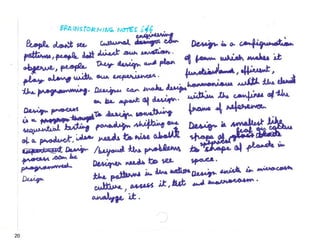 BRAINSTORMING NOTES
People don't see
patterns, people don't
observe, people
play along with
the programming.
Design process
is a
sequential testing
of a product, idea
Design
process can be
programmed.
Design
Cultural engineering can
direct our emotion.
They design and plan
our experiences.
Designer can make design
or be apart of design.
To design something
paradigm shifting one
needs to rise above
/beyond the problems
Designer needs to see
the patterns in the nation
culture, assess it, test
analyze it.
Design is a configuration
of form which makes it
functional, efficient,
harmonious with the
within the confines of the
frame of reference.
Design is smallest like
shape of
to shape of planets in
space.
Design exists in microcosm
and macrocosm.
20